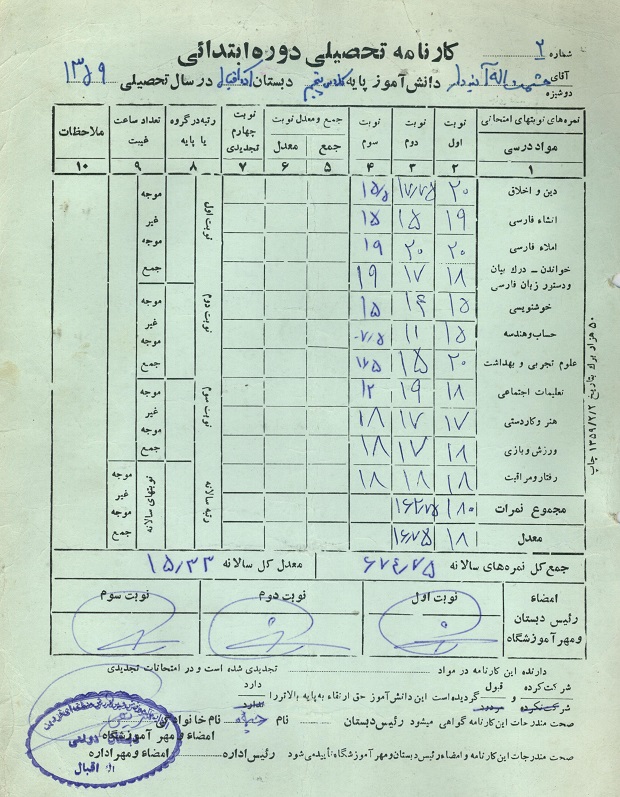 کارنامه تحصیلی دوره ابتدائی
شماره ۲
آقای
دوشیزه
حشمت اله دانش‌آموز پایه پنجم دبستان اقبال در سال تحصیلی ۱۳۵۹
نمره‌های نوبتهای امتحانی نوبت اول نوبت دوم نوبت سوم جمع و معدل نوبت نوبت چهارم تجدیدی رتبه در گروه یا پایه تعداد ساعت غیبت ملاحظات
مواد درسی جمع معدل
۱ ۲ ۳ ۴ ۵ ۶ ۷ ۸ ۹ ۱۰
دین و اخلاق ۲۰ ۱۷/۷۵ ۱۵/۵ نوبت اول موجه
انشاء فارسی ۱۹ ۱۵ ۱۵ غیر
املاء فارسی ۲۰ ۲۰ ۱۹ موجه
خواندن – درک بیان ودستور زبان فارسی ۱۸ ۱۷ ۱۹ جمع
خوشنویسی ۱۵ ۱۴ ۱۵ نوبت دوم موجه
حساب و هندسه ۱۵ ۱۱ ۰۷/۵ غیر موجه
علوم تجربی و بهداشت ۲۰ ۱۵ جمع
تعلیمات اجتماعی ۱۸ ۱۹ ۱۲ نوبت سوم موجه
هنر و کاردستی ۱۷ ۱۷ ۱۸ غیر موجه
ورزش و بازی ۱۸ ۱۷ ۱۸ جمع
رفتار و مراقبت ۱۸ ۱۸ ۱۸ رتبه سالانه نوبتهای سالانه موجه
مجموع نمرات ۱۸۰ غیر موجه
معدل ۱۸ جمع
جمع کل نمره‌های سالانه ۶۷۴/۷۵ معدل کل سالانه ۱۵/۳۳
امضاء رئیس دبستان و مهر آموزشگاه نوبت اول نوبت دوم نوبت سوم
دارنده این کارنامه در مواد تجدیدی شده است و در امتحانات تجدیدی
شرکت کرده قبول دارد
شرکت نکرده و مردود گردیده است این دانش‌آموز حق ارتقاء به پایه بالاتر را ندارد
صحت مندرجات این کارنامه گواهی میشود رئیس دبستان نام نام خانوادگی
امضاء و مهر آموزشگاه
صحت مندرجات این کارنامه و امضاء رئیس دبستان و مهر آموزشگاه تأیید می‌شود رئیس اداره امضاء و مهر اداره
دبستان دولتی
اقبال
۵۰ هزار برگ بتاریخ ۱۳۵۹/۲/۲ چاپ